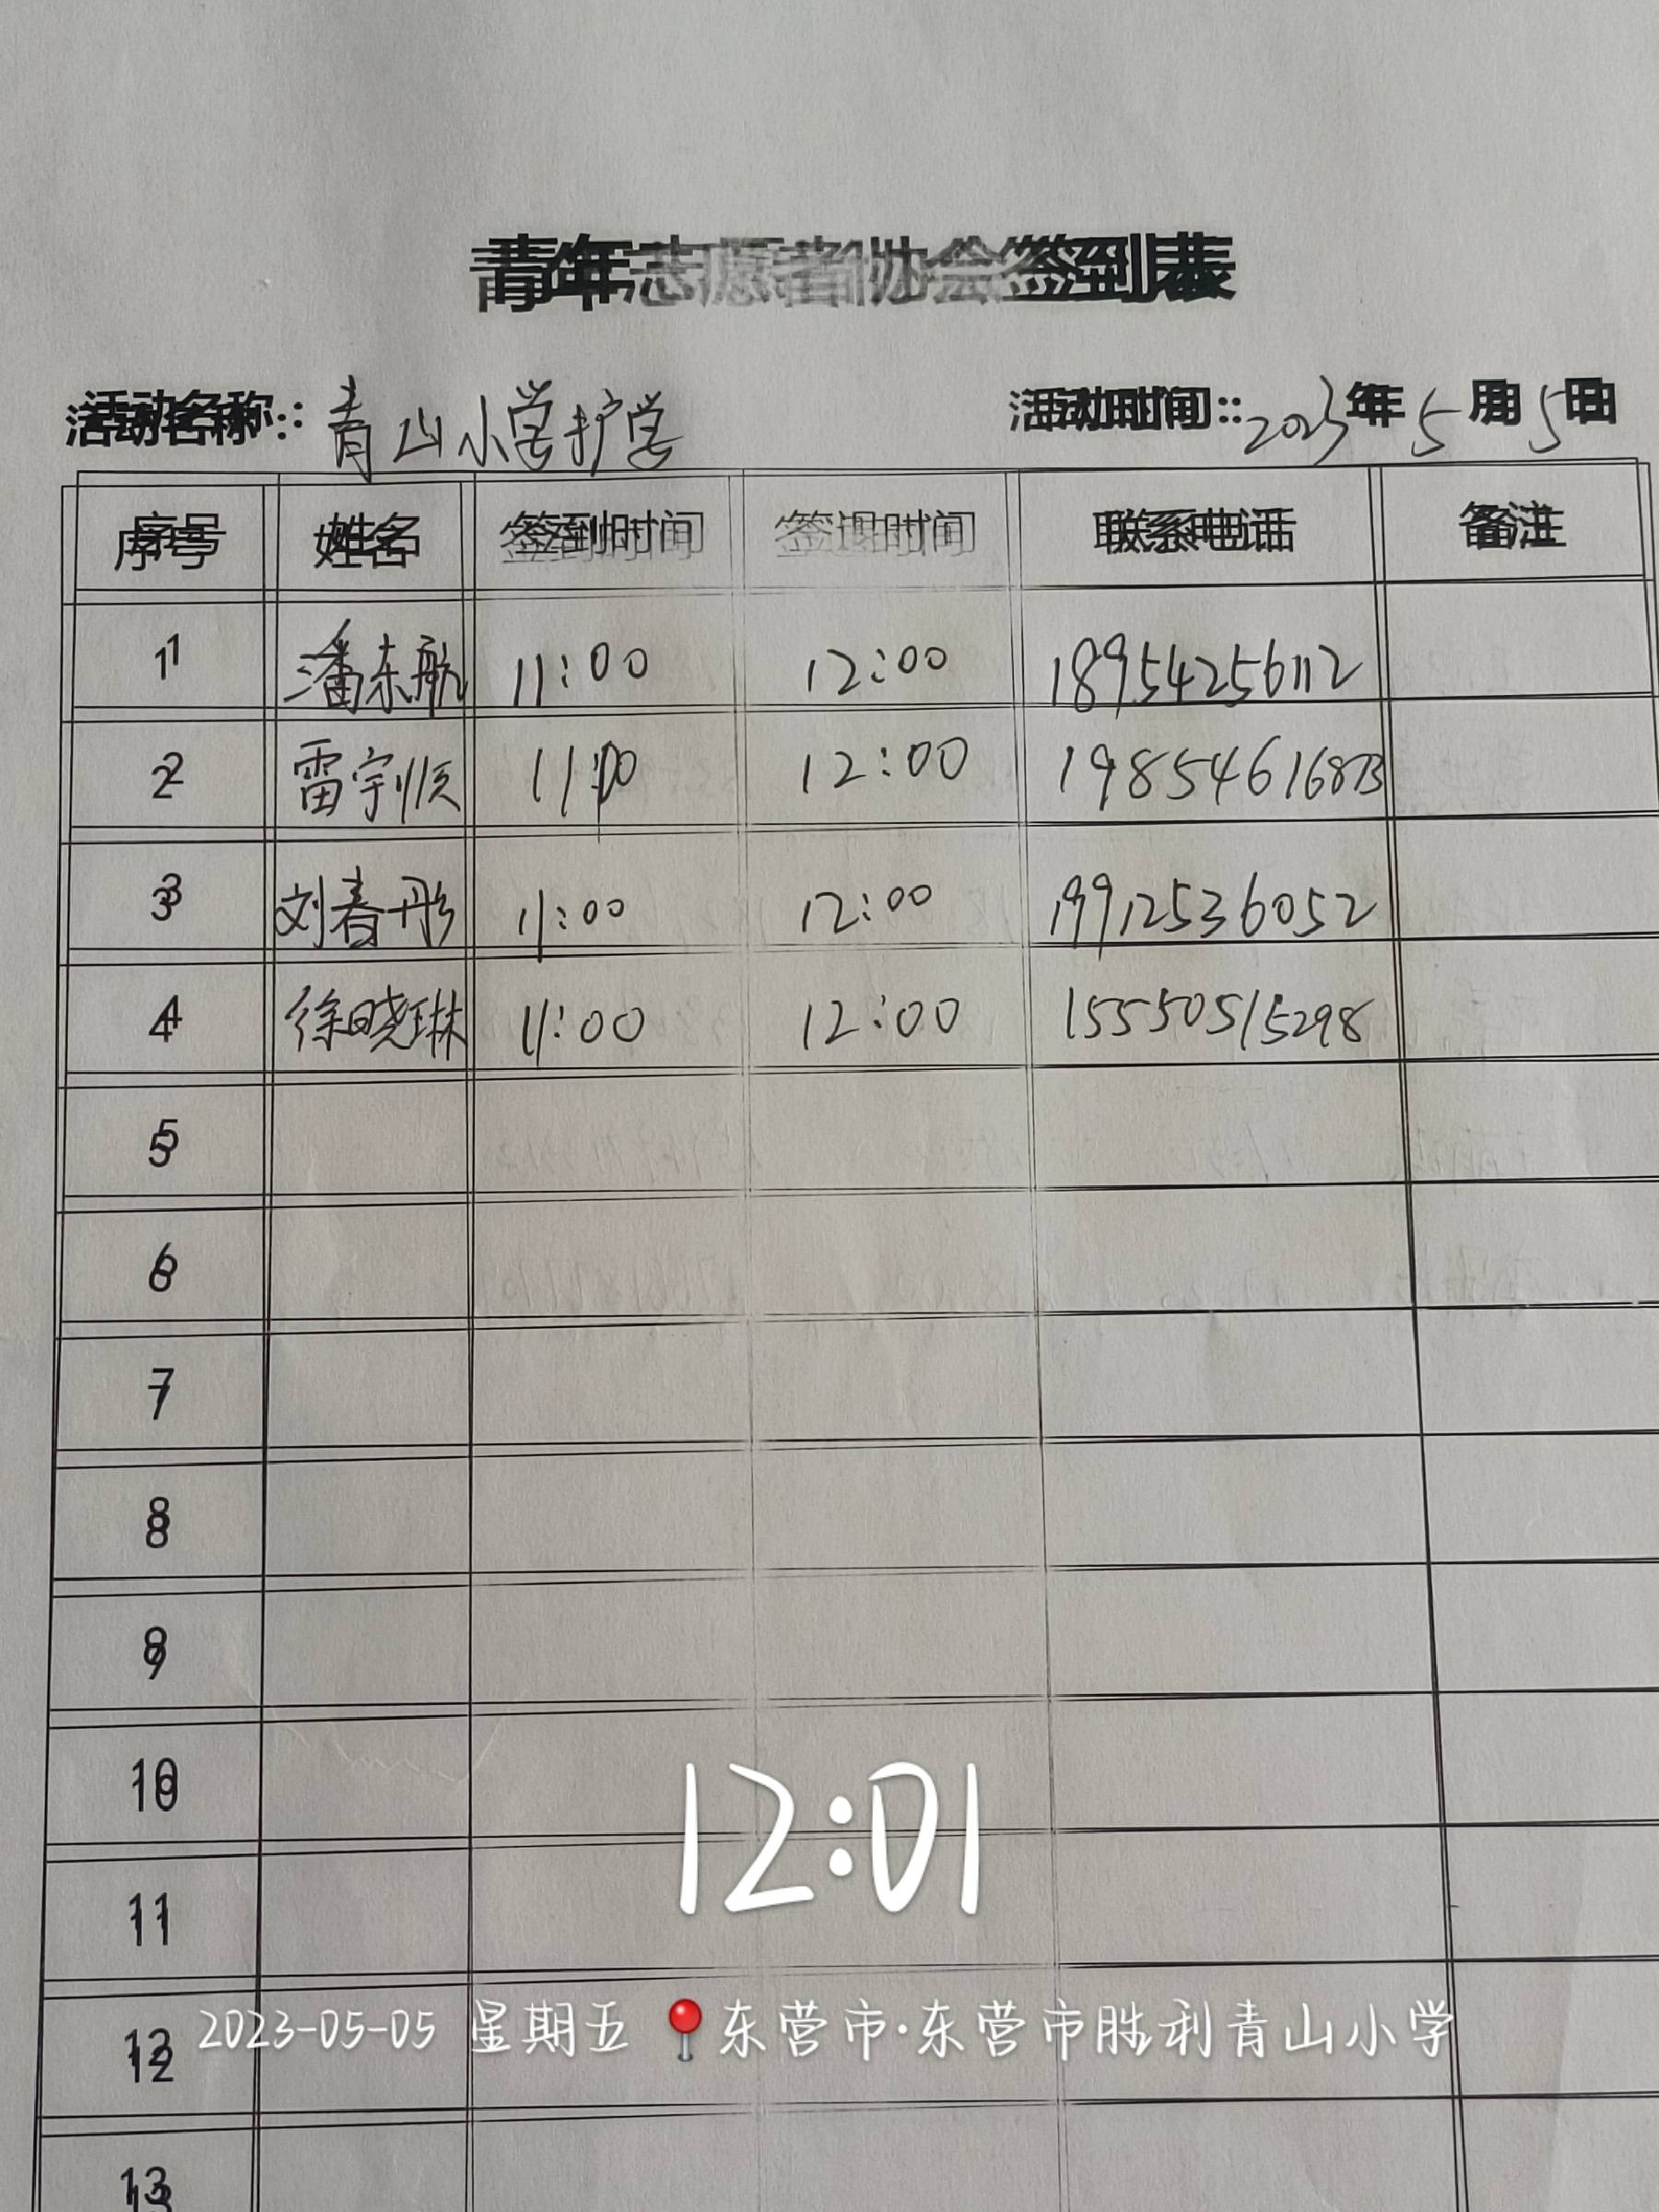 青年志愿者协会签到表
活动名称: 青山小学护学 活动时间: 2023年5月5日
序号 姓名 签到时间 签退时间 联系电话 备注
1 潘东航 11:00 12:00 18954256112
2 雷宇恒 11:00 12:00
3 刘春彤 11:00 12:00 19912536052
4 徐晓琳 11:00 12:00 15550515298
5
6
7
8
9
10
11
12
13
12:01
2023-05-05 星期五 📍东营市·东营市胜利青山小学